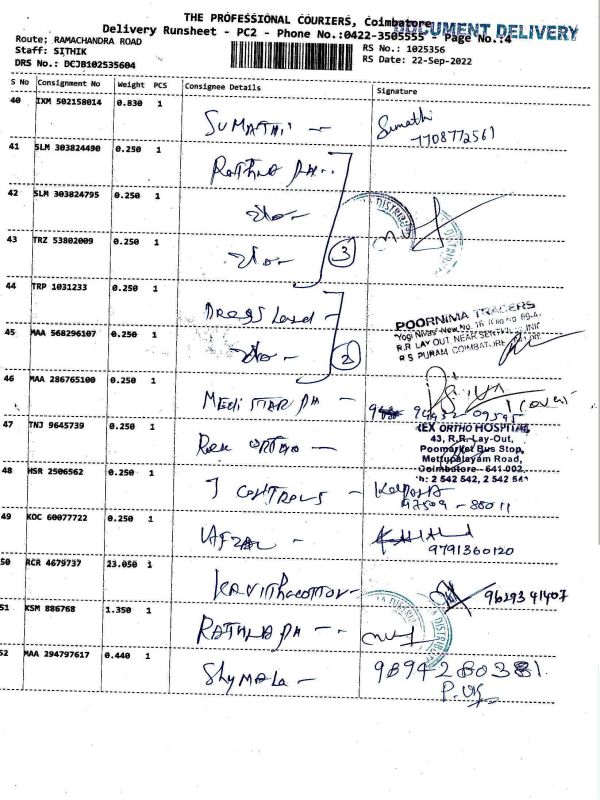 THE PROFESSIONAL COURIERS, Coimbatore
DOCUMENT DELIVERY
Delivery Runsheet - PC2 - Phone No.:0422-3505555 - Page No.:4
Route; RAMACHANDRA ROAD
RS No.: 1025356
Staff: SITHIK
RS Date: 22-Sep-2022
DRS No.: DCJB102535604
S No Consignment No Weight PCS Consignee Details Signature
40 IXM 502158014 0.830 1
SUMATHI - Sumathi
7708772561
41 SLM 303824490 0.250 1
Rathna PH..
42 SLM 303824795 0.250 1
43 TRZ 53802009 0.250 1
3
44 TRP 1031233 0.250 1
Drugs Land -
POORNIMA TRADERS
R.R LAY OUT NEAR
R S PURAM COIMBATORE
45 MAA 568296107 0.250 1
2
46 MAA 286765100 0.250 1
MEDI STAR PH -
47 TNJ 9645739 0.250 1
REX ORTHO -
REX ORTHO HOSPITAL
43, R.R. Lay-Out,
Poomarket Bus Stop,
Mettupalayam Road,
Coimbatore - 641 002.
48 HSR 2506562 0.250 1
J CONTROLS -
49 KOC 60077722 0.250 1
AFZAL -
9791360120
50 RCR 4679737 23.050 1
Kavitha cotton -
51 KSM 886768 1.350 1
RATHNA PH - -
52 MAA 294797617 0.440 1
Shymala -